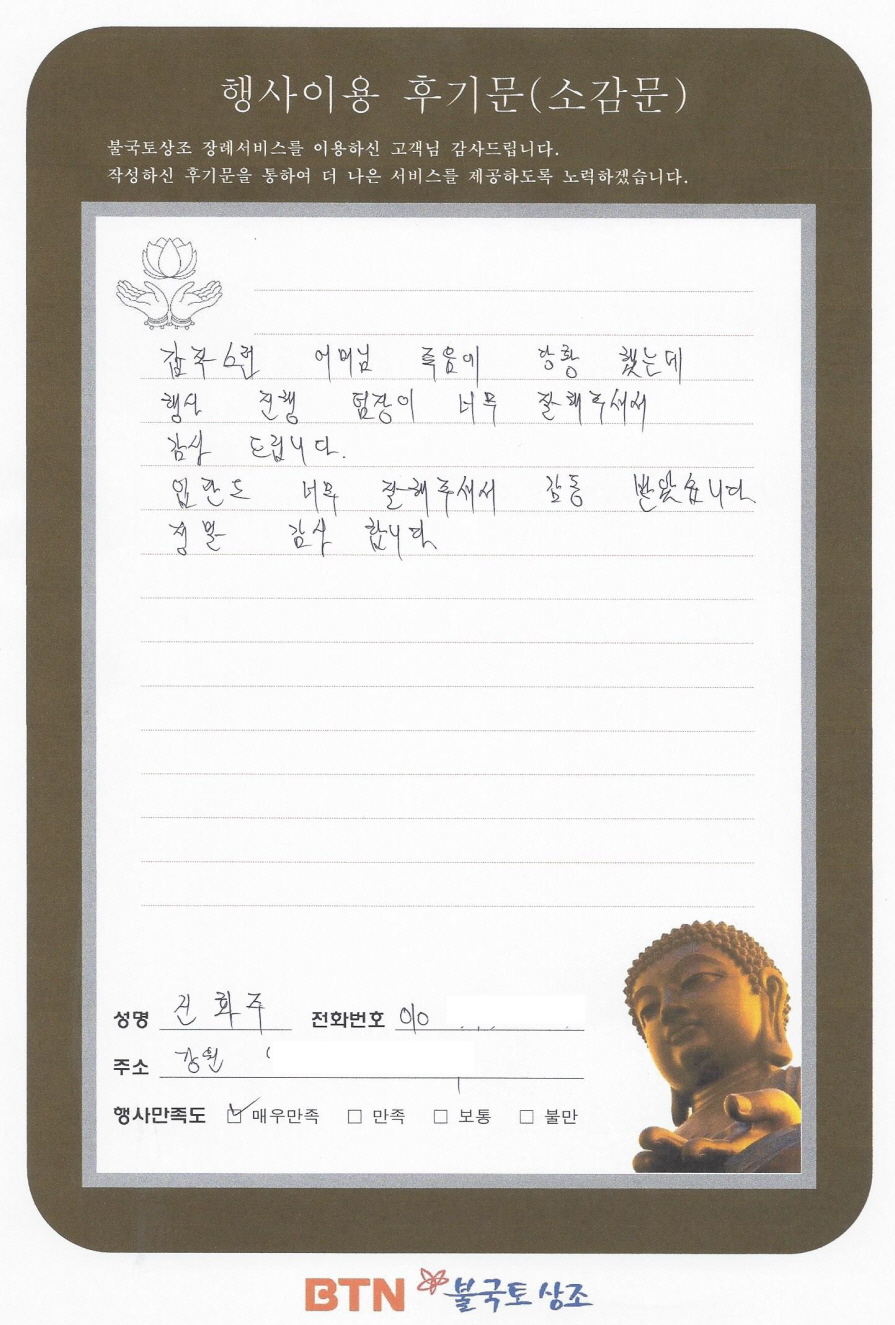 행사이용 후기문(소감문)
불국토상조 장례서비스를 이용하신 고객님 감사드립니다.
작성하신 후기문을 통하여 더 나은 서비스를 제공하도록 노력하겠습니다.
갑작스런 어머님 죽음에 당황 했는데
행사 진행 팀장이 너무 잘해주셔서
감사 드립니다.
입관도 너무 잘해주셔서 감동 받았습니다
정말 감사 합니다
성명 진화주 전화번호 010
주소 강원
행사만족도 매우만족 만족 보통 불만
BTN 불국토상조